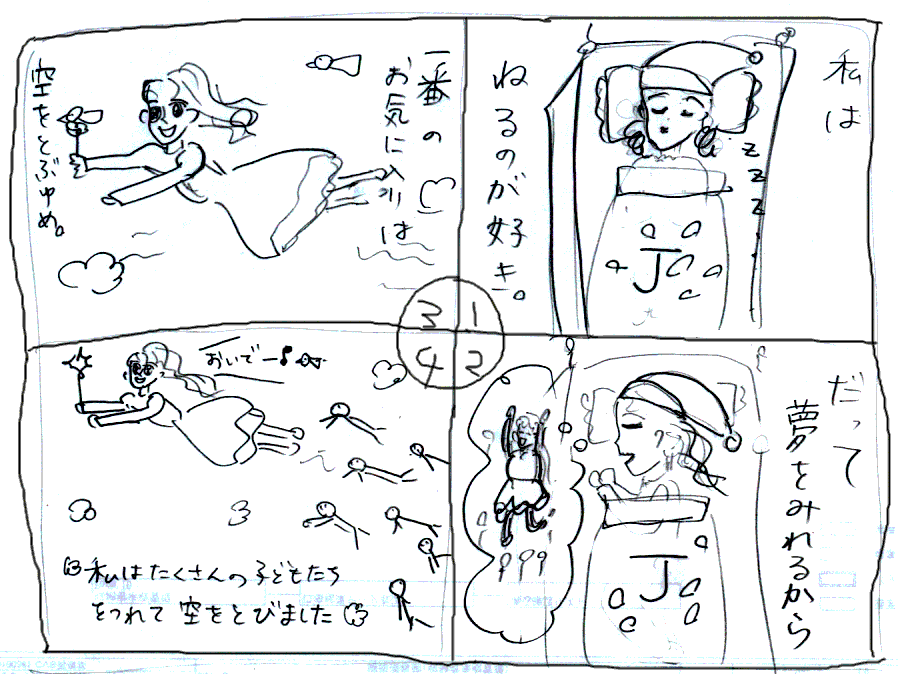 私は
ねるのが好き。
z
z
z
J
1
だって
夢をみれるから
J
2
一番の
お気に入りは
空をとぶゆめ。
3
おいでー♪
私はたくさんの子どもたち
をつれて空をとびました
4